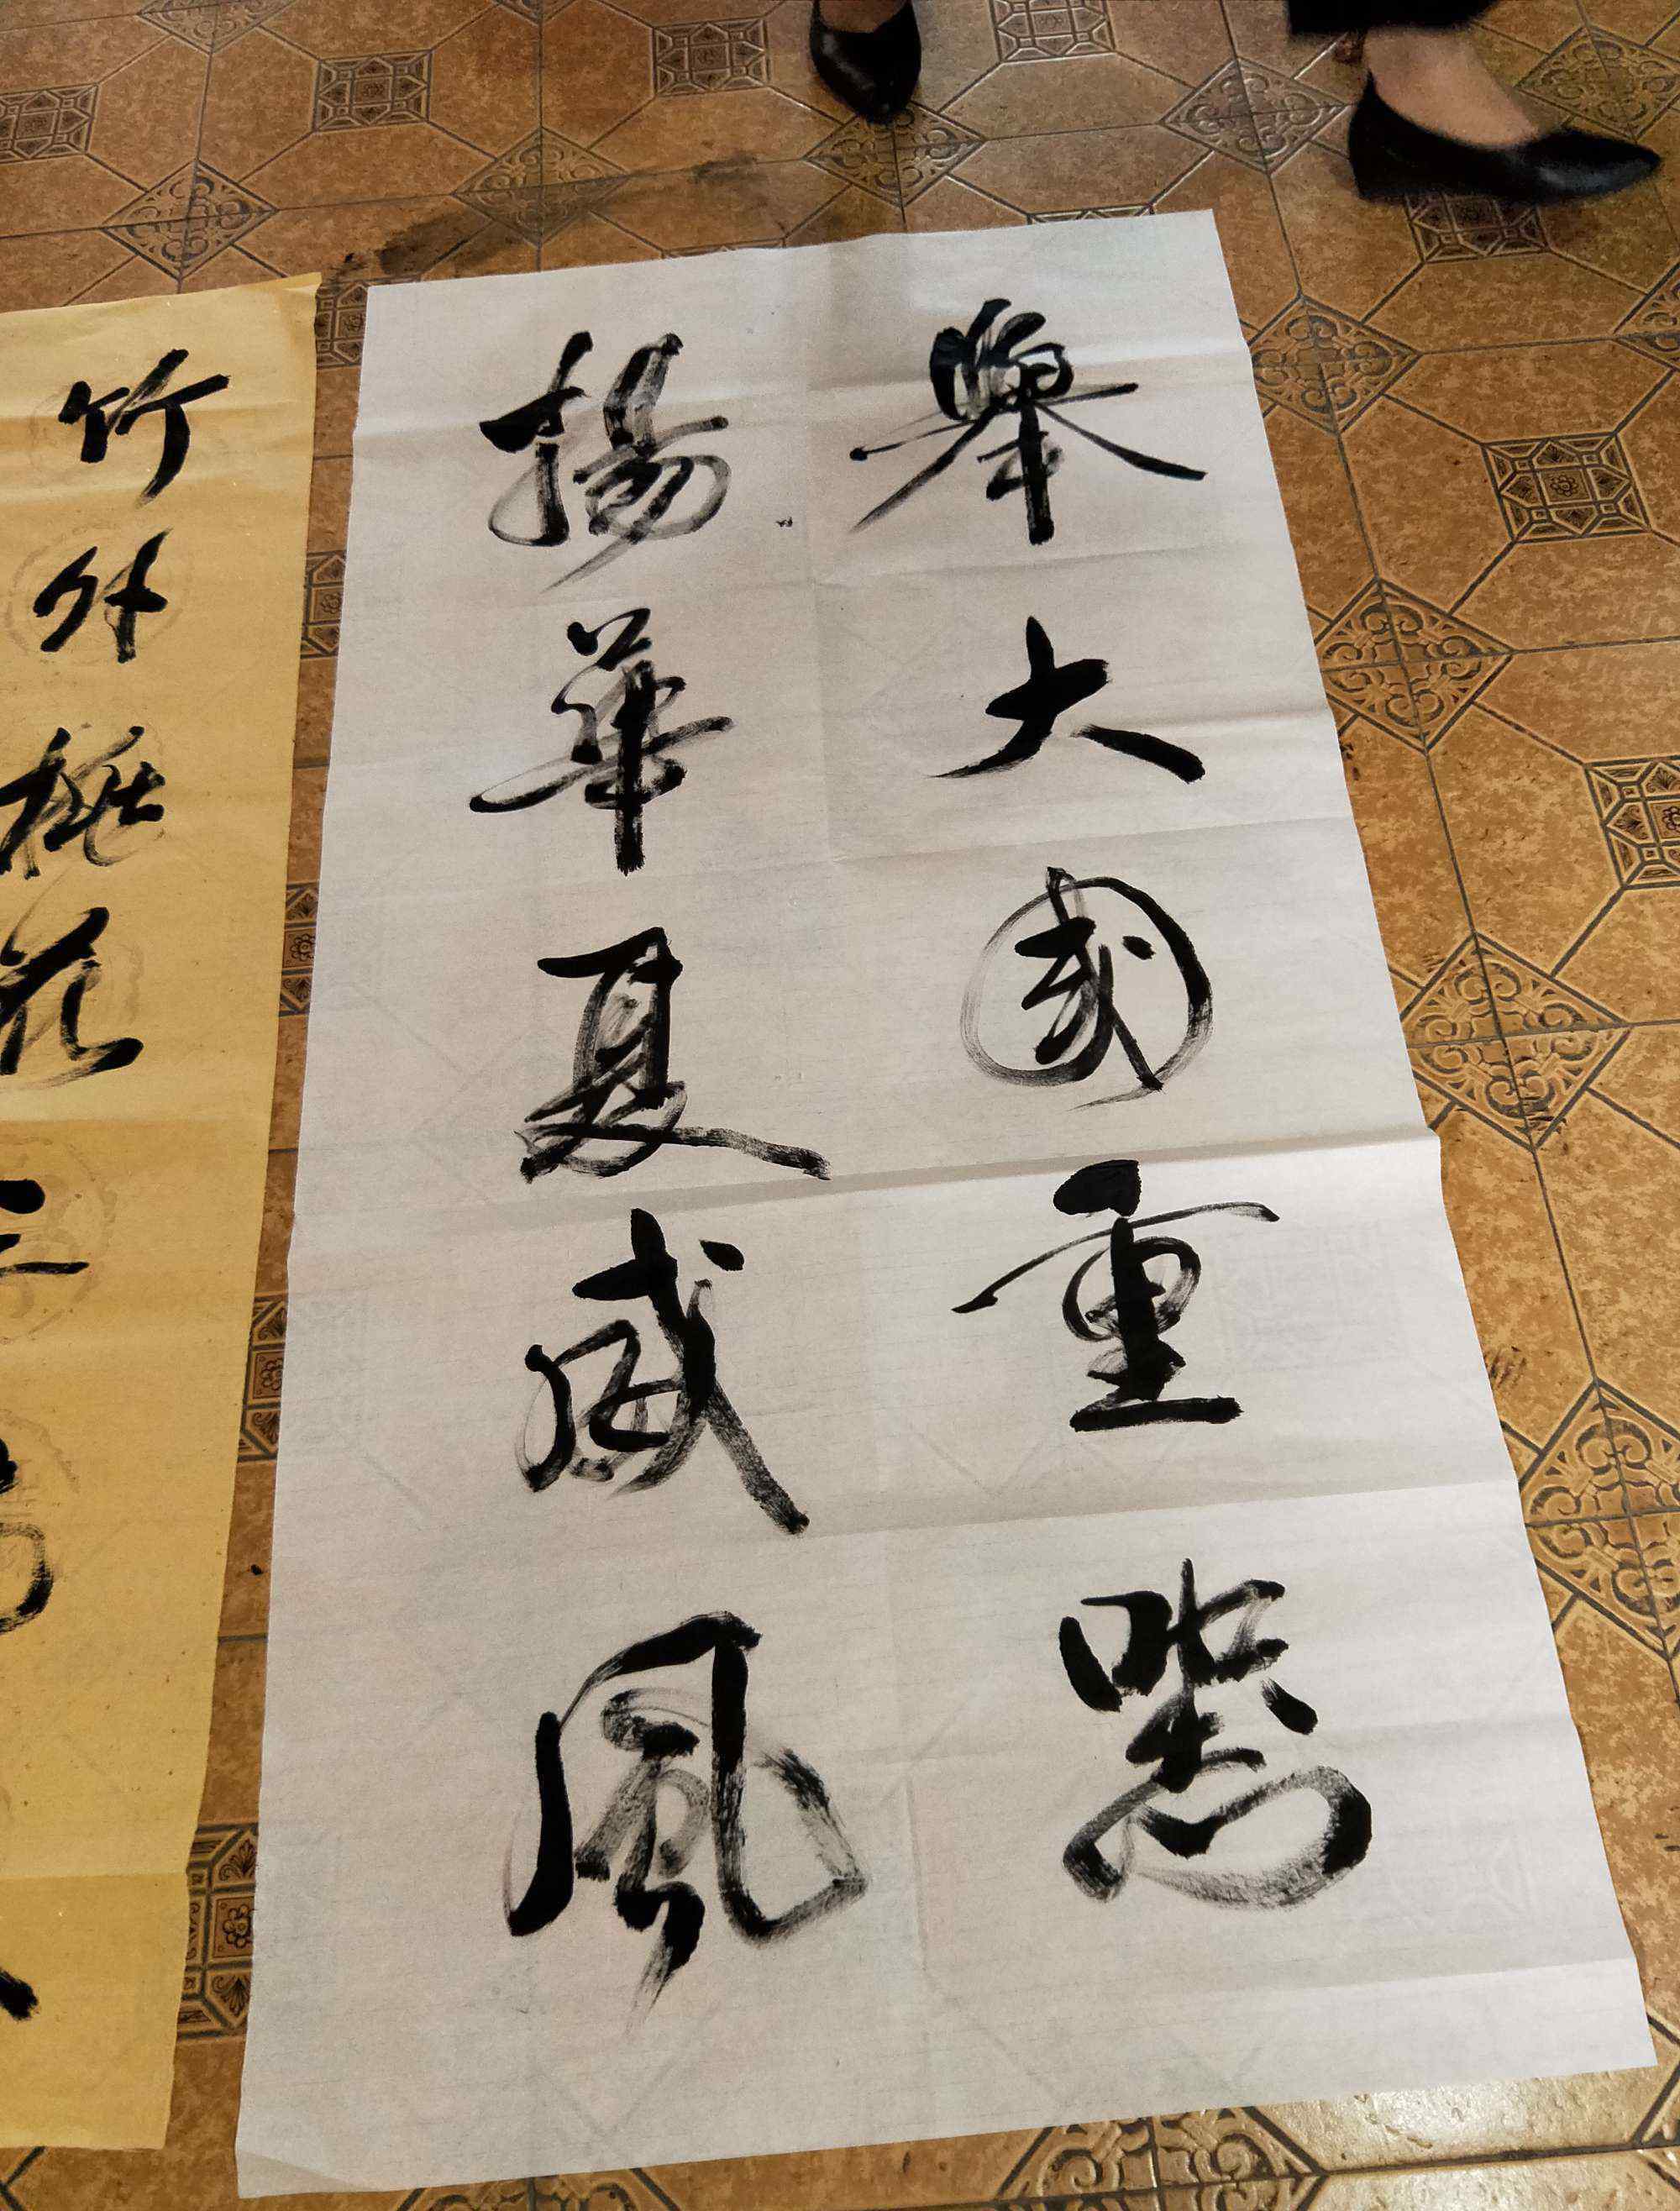 舉大國重器
揚華夏威風
竹外桃花三